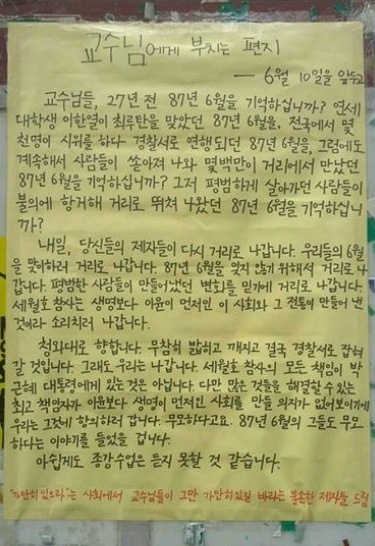 교수님에게 부치는 편지
— 6월 10일을 앞두고
교수님들, 27년 전 87년 6월을 기억하십니까? 연세
대학생 이한열이 최루탄을 맞았던 87년 6월을, 전국에서 몇
천명이 시위를 하다 경찰서로 연행되던 87년 6월을, 그럼에도
계속해서 사람들이 쏟아져 나와 몇백만이 거리에서 만났던
87년 6월을 기억하십니까? 그저 평범하게 살아가던 사람들이
불의에 항거해 거리로 뛰쳐 나왔던 87년 6월을 기억하십니
까?
내일, 당신들의 제자들이 다시 거리로 나갑니다. 우리들의 6월
을 맞이하러 거리로 나갑니다. 87년 6월을 잊지 않기 위해서 거리로 나
갑니다. 평범한 사람들이 만들어냈던 변화를 믿기에 거리로 나갑니다.
세월호 참사는 생명보다 이윤이 먼저인 이 사회와 그 전통이 만들어 낸
것이라 소리치러 나갑니다.
청와대로 향합니다. 무참히 밟히고 깨지고 결국 경찰서로 잡혀
갈 것입니다. 그래도 우리는 나갑니다. 세월호 참사의 모든 책임이 박
근혜 대통령에게 있는 것은 아닙니다. 다만 많은 것들을 해결할 수 있는
최고 책임자가 이윤보다 생명이 먼저인 사회를 만들 의지가 없어보이기에
우리는 그것에 항의하러 갑니다. 무모하다고요. 87년 6월의 그들도 무모
하다는 이야기를 들었을 겁니다.
아쉽게도 종강수업은 듣지 못할 것 같습니다.
"가만히 있으라"는 사회에서 교수님들이 그만 가만히있길 바라는 불손한 제자들 드림